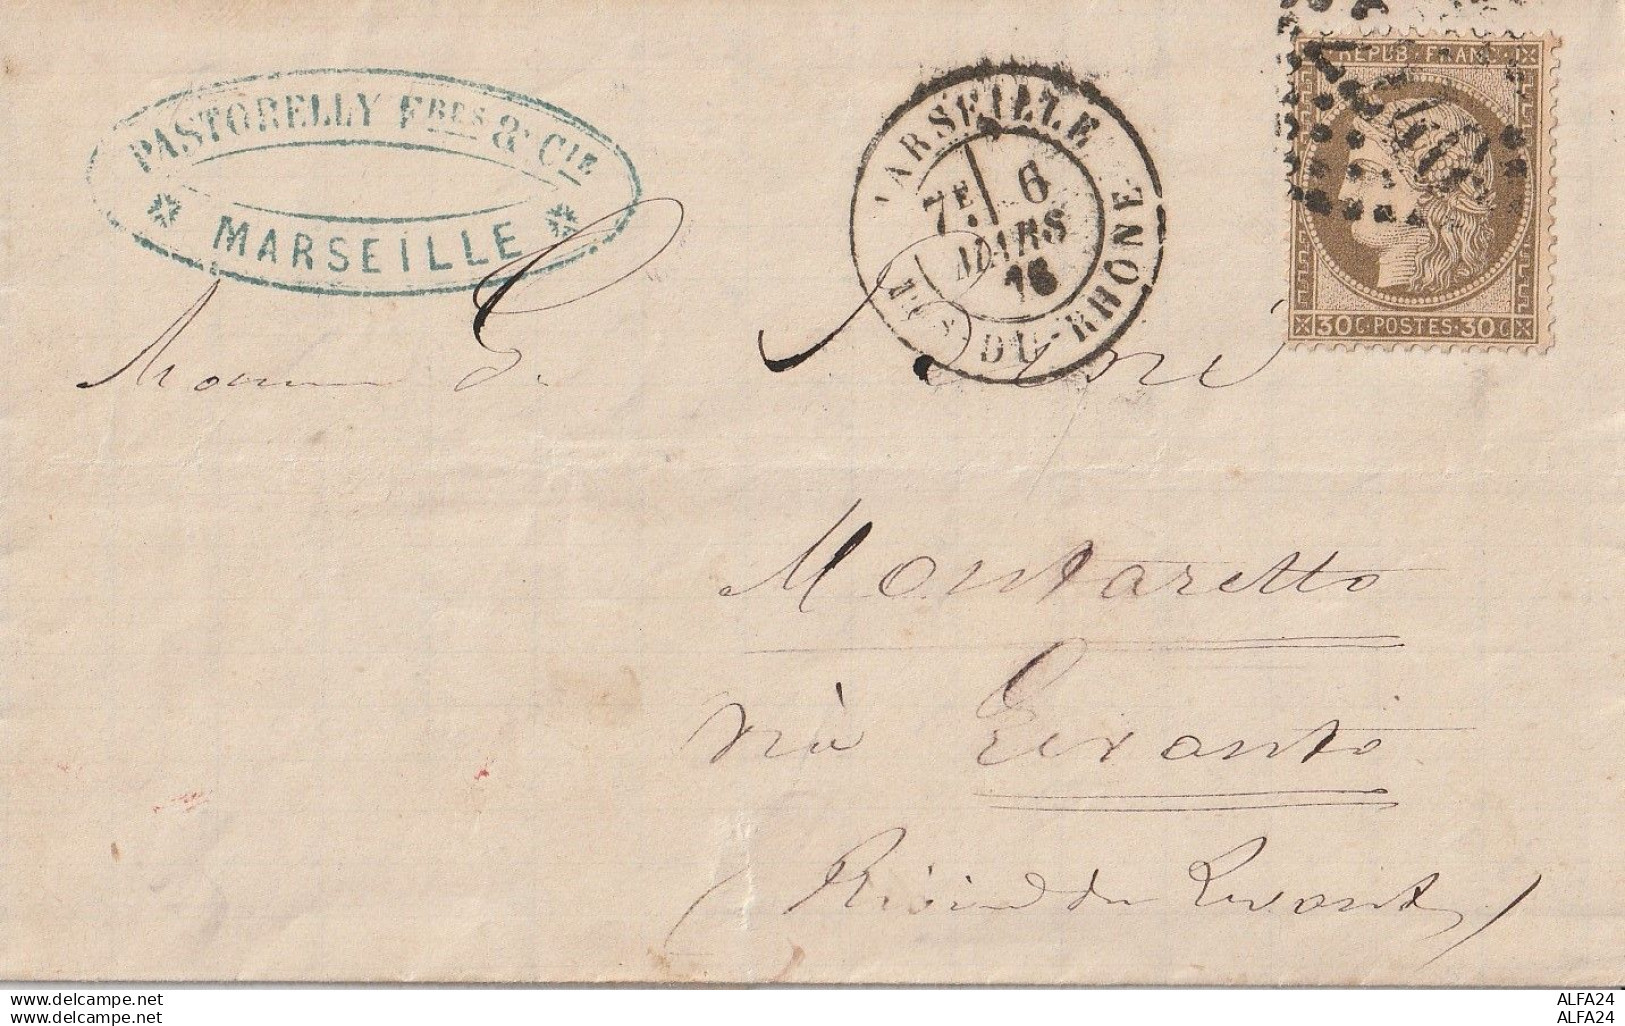 PASTORELLY FRES & CIE
MARSEILLE
MARSEILLE
7E 6
MARS
76
BCHES DU-RHÔNE
REPUB. FRANC.
30 C. POSTES. 30 C
Montaretto
via Levanto
(Rivière du Levant)
www.delcampe.net
your_own_website.com
ALFA24
ALFA24